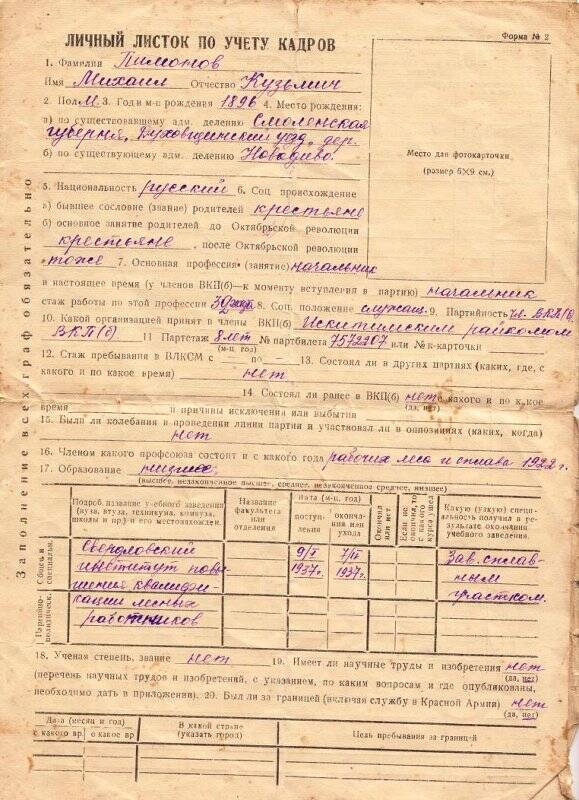 Форма № 2
ЛИЧНЫЙ ЛИСТОК ПО УЧЕТУ КАДРОВ
1. Фамилия Пимонов
Имя Михаил Отчество Кузьмич
2. Пол М. 3. Год и м-ц рождения 1896 4. Место рождения:
а) по существовавшему адм. делению Смоленская
губерния, Духовщинский уезд, дер.
б) по существующему адм. делению Новодиво.
Место для фотокарточки
(размер 6×9 см.)
5. Национальность русский 6. Соц. происхождение
а) бывшее сословие (звание) родителей крестьяне
б) основное занятие родителей до Октябрьской революции
крестьяне, после Октябрьской революции
тоже 7. Основная профессия (занятие) начальник
и настоящее время (у членов ВКП(б)—к моменту вступления в партию) начальник
стаж работы по этой профессии 8. Соц. положение служащ. 9. Партийность чл. ВКП(б)
10. Какой организацией принят в члены ВКП(б) Искитимским райкомом
ВКП(б) 11 Партстаж 8 лет № партбилета 7572907 или № к-карточки
(м-ц год)
12. Стаж пребывания в ВЛКСМ с — по — 13. Состоял ли в других партиях (каких, где, с
какого и по какое время) нет
14. Состоял ли ранее в ВКП(б) нет с какого и по к кое
(да, нет)
время и причины исключения или выбытия
15. Были ли колебания в проведении линии партии и участвовал ли в оппозициях (каких, когда)
нет
16. Членом какого профсоюза состоит и с какого года рабочих леса и сплава 1922 г.
17. Образование низшее
(высшее, незаконченное высшее, среднее, незаконченное среднее, низшее)
Заполнение всех граф обязательно
Подробн. название учебного заведения (вуза, втуза, техникума, комвуза, школы и пр.) и его местонахожден.
Название факультета или отделения
Дата (м-ц, год)
поступления
окончания или ухода
Окончил или нет
Если не окончил, то с какого курса ушел
Какую (узкую) специальность получил в результате окончания учебного заведения.
Общее и специальн.
Свердловский 9/I 7/II Зав. сплав-
институт повы- 1937г. 1937г. ным
шения квалифи- участком.
Партийно-политическ.
кации лесных
работников
18. Ученая степень, звание нет 19. Имеет ли научные труды и изобретения нет
(да, нет)
(перечень научных трудов и изобретений, с указанием, по каким вопросам и где опубликованы,
необходимо дать в приложении). 20. Был ли за границей (включая службу в Красной Армии) нет
(да, нет)
Дата (месяц и год)
с какого вр. о какое вр
В какой стране
(указать город)
Цель пребывания за границей